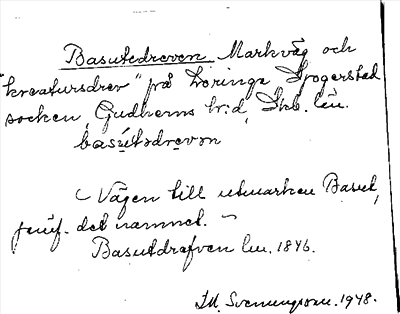 Basutedreven Markväg och
"kreatursdrev" på Loringa Spogersted
socken, Gudhems hrd, Skb. län.
basútədrevən
Vägen till utmarken Basut,
jemf. det namnet.
Basutdrafven lm. 1846.
I.M. Svenungsson. 1948.